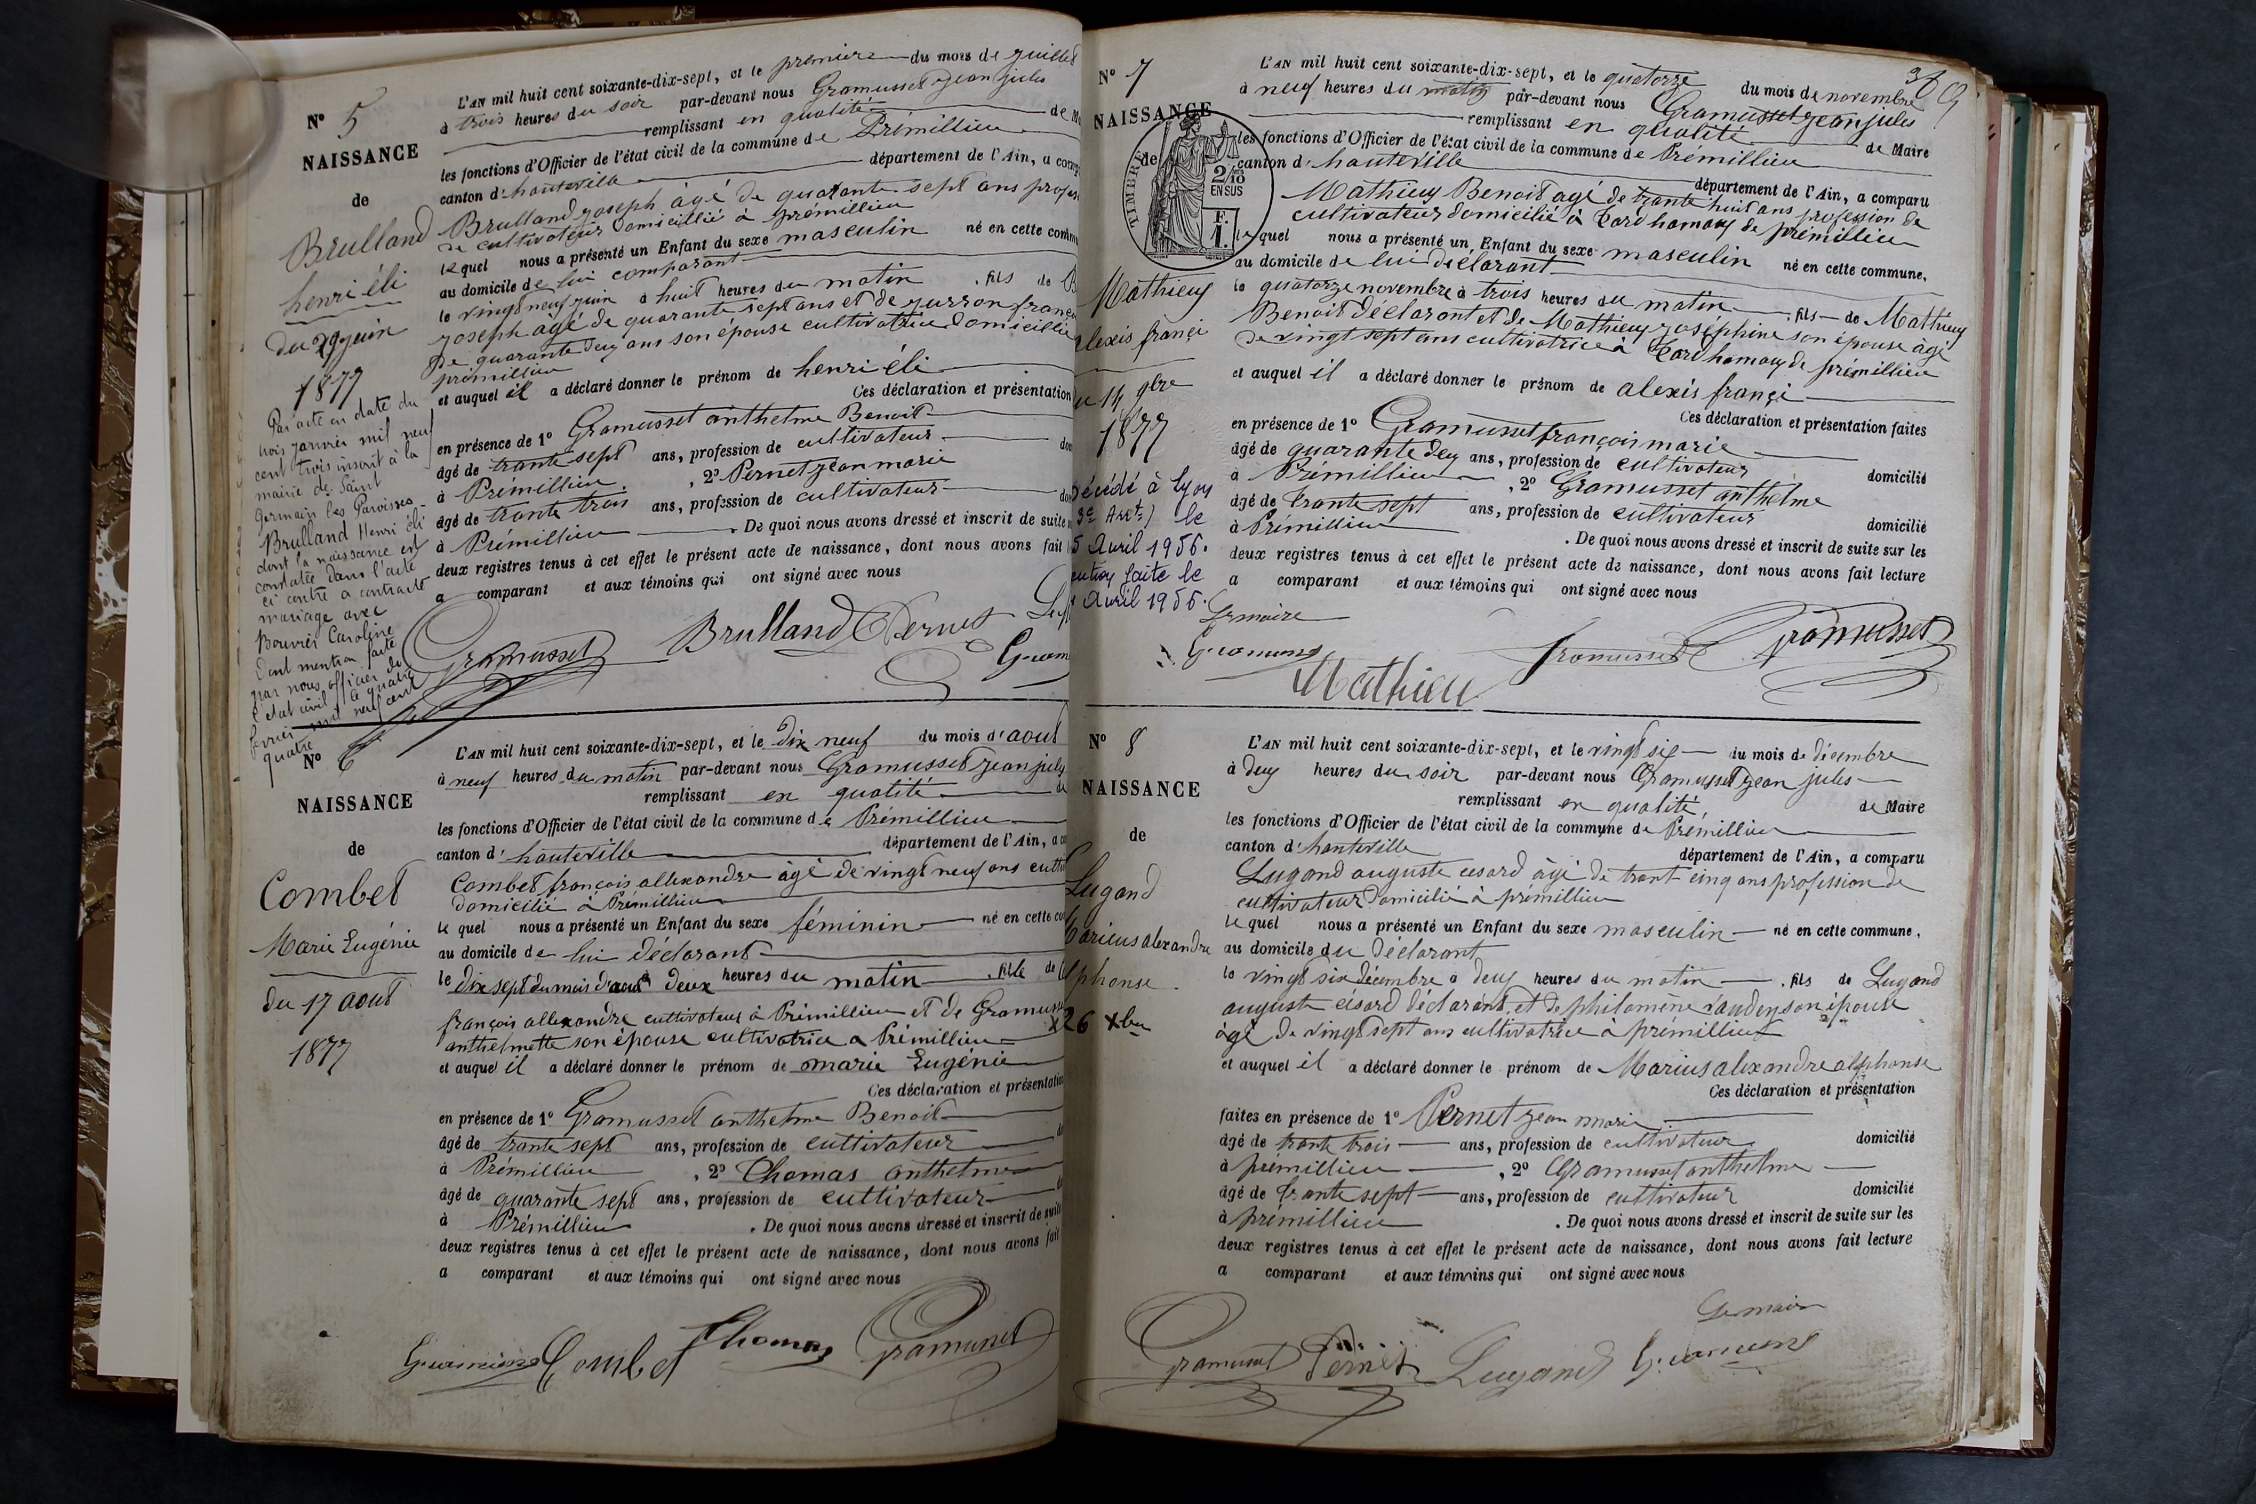 N° 5
NAISSANCE
de
Brulland
henri éli
du 29 juin
1877
Par acte en date du
trois janvier mil neuf
cent trois inscrit à la
mairie de Saint
Germain les Paroisses
Brulland Henri éli
dont la naissance est
constatée dans l'acte
ci contre a contracté
mariage avec
Bouvrei Caroline
dont mention faite
par nous officier de
l'état civil le quatre
février mil neuf cent
quatre
L'AN mil huit cent soixante-dix-sept, et le premiere du mois de juillet
à trois heures du soir par-devant nous Gramusset jean jules
remplissant en qualité de
les fonctions d'Officier de l'état civil de la commune de Prémillieu
canton d'hauteville département de l'Ain, a
Brulland joseph àgé de quatante sept ans
de cultivateur domicillié à prémillieu
le quel nous a présenté un Enfant du sexe masculin né en cette
au domicile de lui comparant
le vingt neuf juin à huit heures du matin . fils de
joseph âgé de quarante sept ans et de
de quarante deux ans son épouse cultivatrice domicillié
prémillieu
et auquel il a déclaré donner le prénom de henri éli
Ces déclaration et présentation
en présence de 1° Gramusset anthelme Benoit
âgé de trante sept ans, profession de cultivateur
à Prémillieu , 2° Pernet jean marie
âgé de trante trois ans, profession de cultivateur
à Prémillieu . De quoi nous avons dressé et inscrit de suite
deux registres tenus à cet effet le présent acte de naissance, dont nous avons fait
a comparant et aux témoins qui ont signé avec nous
Gramusset Brulland Pernet
N° 6
NAISSANCE
de
Combet
Marie Eugénie
du 17 aout
1877
L'AN mil huit cent soixante-dix-sept, et le dix neuf du mois d'aout
à neuf heures du matin par-devant nous Gramusset jean jules
remplissant en qualité
les fonctions d'Officier de l'état civil de la commune de Prémillieu
canton d'hauteville département de l'Ain, a
Combet françois allexandre âgé de vingt neuf ans
domicilié à Prémillieu
le quel nous a présenté un Enfant du sexe féminin né en cette
au domicile de lui déclarant
le dix sept du mois d'aout à deux heures du matin . fille de
françois allexandre cultivateur à Prémillieu et de
anthelmette son épouse cultivatrice a Prémillieu
et auquel il a déclaré donner le prénom de marie Eugénie
Ces déclaration et présentation
en présence de 1° Gramusset anthelme Benoit
âgé de trante sept ans, profession de cultivateur
à Prémillieu , 2° Thomas anthelme
âgé de quarante sept ans, profession de cultivateur
à Prémillieu . De quoi nous avons dressé et inscrit de suite
deux registres tenus à cet effet le présent acte de naissance, dont nous avons fait
a comparant et aux témoins qui ont signé avec nous
Combet Thomas Gramusset
N° 7
NAISSANCE
de
TIMBRE
2/10
EN SUS
F.
1.
Mathieux
alexis françi
14 9bre
1877
Décédé à Lyon
3e Arrt) le
5 Avril 1956.
faite le
Avril 1956.
L'AN mil huit cent soixante-dix-sept, et le quatorze du mois de novembre
à neuf heures du matin par-devant nous Gramusset jean jules
remplissant en qualité de Maire
les fonctions d'Officier de l'état civil de la commune de Prémillieu
canton d'hauteville département de l'Ain, a comparu
Mathieux Benoit agé de trante huit ans profession de
cultivateur domicilié à de prémillieu
le quel nous a présenté un Enfant du sexe masculin né en cette commune,
au domicile de lui déclarant
le quatorze novembre à trois heures du matin . fils de Mathieux
Benoit déclarant et de Mathieux joséphine son épouse àgé
de vingt sept ans cultivatrice à de prémillieu
et auquel il a déclaré donner le prénom de alexis françi
Ces déclaration et présentation faites
en présence de 1° Gramusset françois marie
âgé de quarante deux ans, profession de cultivateur
à Prémillieu , 2° Gramusset anthelme domicilié
âgé de trante sept ans, profession de cultivateur
à Prémillieu domicilié
. De quoi nous avons dressé et inscrit de suite sur les
deux registres tenus à cet effet le présent acte de naissance, dont nous avons fait lecture
a comparant et aux témoins qui ont signé avec nous
Le maire
Mathieu Gramusset Gramusset
N° 8
NAISSANCE
de
Lugand
Marius alexandre
alphonse
26 Xbre
L'AN mil huit cent soixante-dix-sept, et le vingt six du mois de décembre
à deux heures du soir par-devant nous Gramusset jean jules
remplissant en qualité de Maire
les fonctions d'Officier de l'état civil de la commune de Prémillieu
canton d'hauteville département de l'Ain, a comparu
Lugand auguste cesard àgé de trant cinq ans profession de
cultivateur domicilié à prémillieu
le quel nous a présenté un Enfant du sexe masculin né en cette commune,
au domicile du déclarant
le vingt six décembre à deux heures du matin . fils de Lugand
auguste césard déclarant et de philomène son épouse
àgé de vingt sept ans cultivatrice a prémillieu
et auquel il a déclaré donner le prénom de Marius alexandre alphonse
Ces déclaration et présentation
faites en présence de 1° Pernet jean marie
âgé de trante trois ans, profession de cultivateur domicilié
à prémillieu , 2° Gramusset anthelme
âgé de trante sept ans, profession de cultivateur domicilié
à prémillieu . De quoi nous avons dressé et inscrit de suite sur les
deux registres tenus à cet effet le présent acte de naissance, dont nous avons fait lecture
a comparant et aux témoins qui ont signé avec nous
Le maire
Gramusset Pernet Lugand